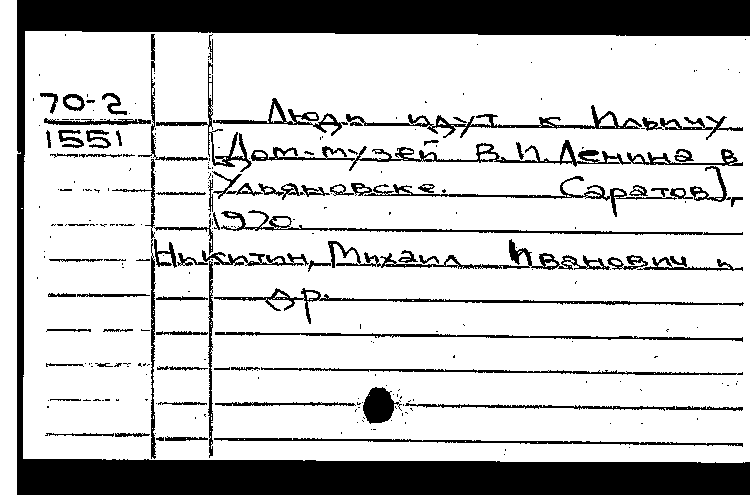 70-2
1551
Люди идут к Ильичу
[Дом-музей В.И.Ленина в
Ульяновске. Саратов],
1970.
Никитин, Михаил Иванович и
др.